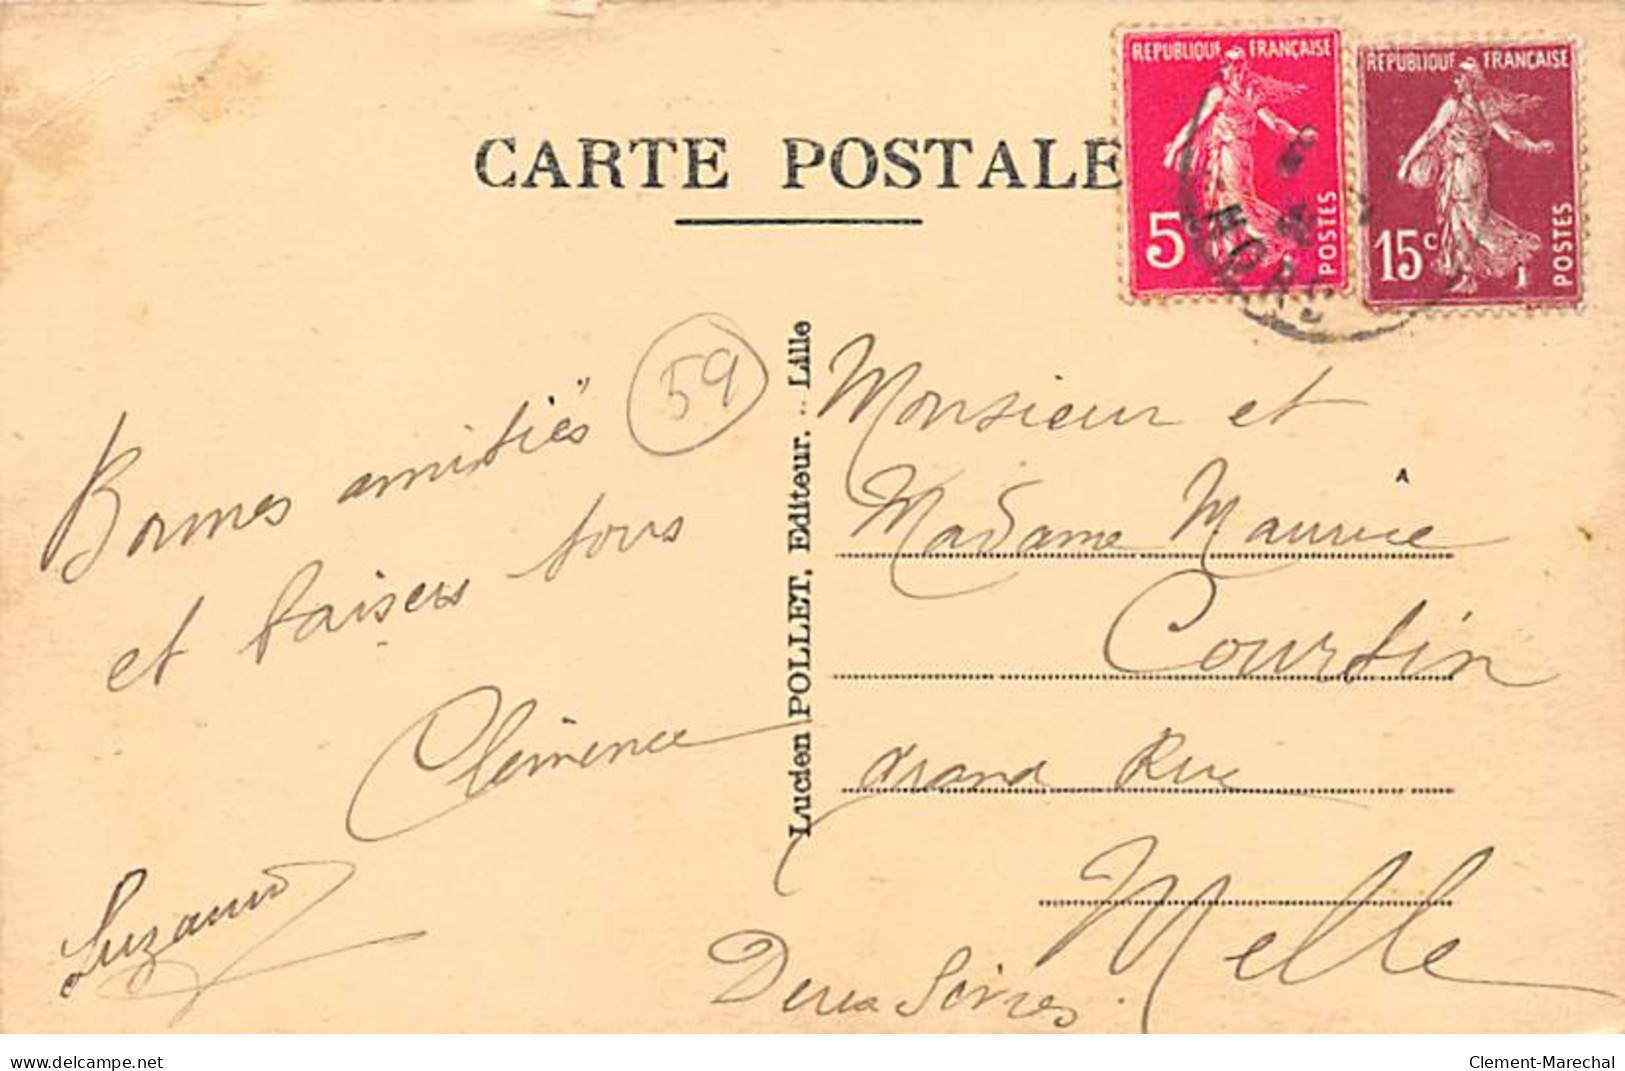 CARTE POSTALE
REPUBLIQUE FRANÇAISE
5
POSTES
REPUBLIQUE FRANÇAISE
15c
POSTES
HORS
59
Bonnes amitiés
et baisers tous
Clémence
Suzanne
Lucien POLLET, Editeur. - Lille
Monsieur et
Madame Maurice
Courtin
Grand Rue
Melle
Deux Sèvres.
www.delcampe.net
Clement-Marechal